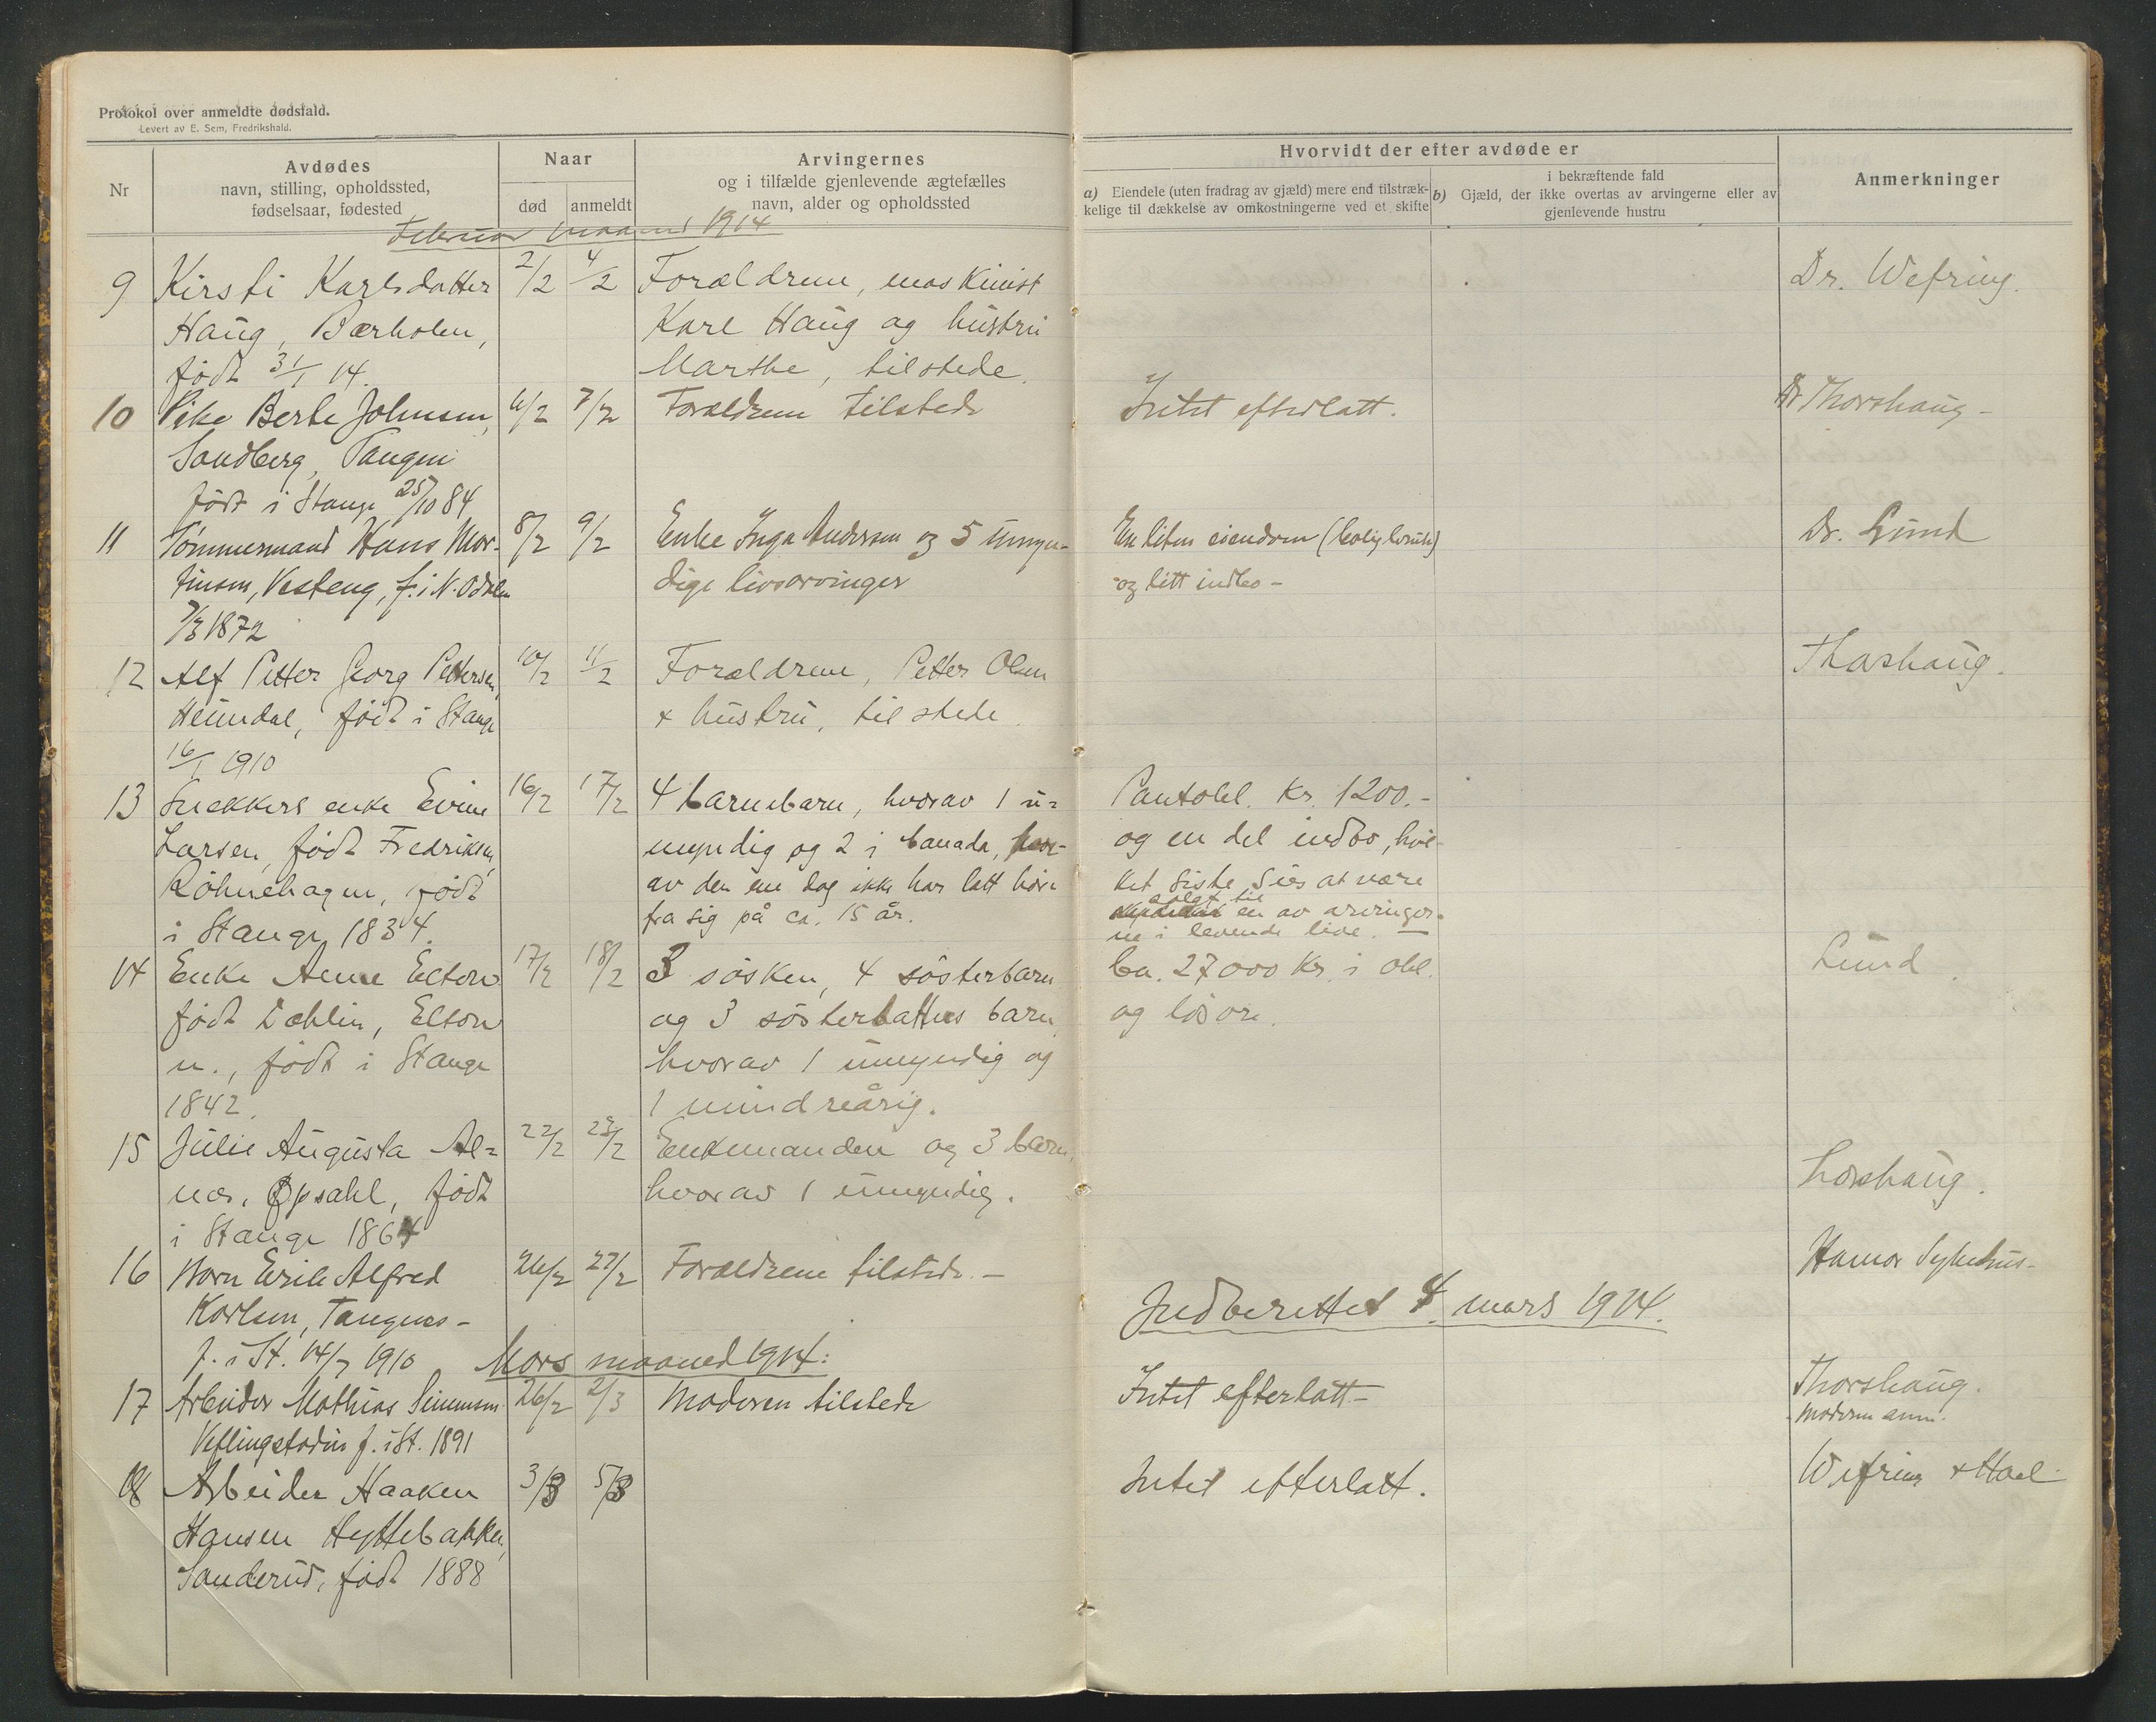 Protokol over anmeldte dødsfald.
Levert av E. Sem, Fredrikshald.
Nr
Avdødes
navn, stilling, opholdssted,
fødselsaar, fødested
Naar
død
anmeldt
Arvingernes
og i tilfælde gjenlevende ægtefælles
navn, alder og opholdssted
Hvorvidt der efter avdøde er
a) Eiendele (uten fradrag av gjæld) mere end tilstræk-
kelige til dækkelse av omkostningerne ved et skifte
i bekræftende fald
b) Gjæld, der ikke overtas av arvingerne eller av
gjenlevende hustru
Anmerkninger
Februar maaned 1914
9 Kirsti Karlsdatter 2/2 4/2 Forældrene, maskinist Dr. Wefring.
Haug, Bærholen, Karl Haug og hustru
født 31/1 14. Marthe, tilstede.
10 Pike Berte Johnsen, 6/2 7/2 Forældrene tilstede Intet efterlatt. Dr Thorshaug -
Sandberg, Tangen
født i Stange 25/10 84
11 Tømmermand Hans Mor- 8/2 9/2 Enke Inga Andersen og 5 umyn- En liten eiendom (boligbruk) Dr. Lund
tinsen, Vesteng, f. i N. Odalen dige livsarvinger og litt indbo -
7/3 1872
12 Alf Petter Georg Pettersen, 10/2 11/2 Forældrene, Petter Olsen Thorshaug.
Heimdal, født i Stange + hustru, tilstede.
16/1 1910
13 Snekkers enke Evine 16/2 17/2 4 barnebarn, hvorav 1 u= Pantobl. Kr. 1200.-
Larsen, født Fredriksen, myndig og 2 i Canada, hvor- og en del indbo, hvil-
Röhnehagen, født av den ene dog ikke har latt høre ket siste sies at være
i Stange 1834. fra sig på ca. 15 år. solgt til en av arvinger-
ne i levende live. -
14 Enke Anne Elton 17/2 18/2 3 søsken, 4 søsterbarn Ca. 27000 Kr. i obl. Lund.
født Dæhlin, Elton og 3 søsterdatters barn, og løsøre.
n., født i Stange hvorav 1 umyndig og
1842. 1 mindreårig.
15 Julie Augusta Al= 22/2 23/2 Enkemanden og 3 barn, Thorshaug.
næs, Opsahl, født hvorav 1 umyndig.
i Stange 1864
16 Barn Erik Alfred 26/2 27/2 Forældrene tilstede. - Hamar Sykehus -
Karlsen, Tangenes - Indberettet 4. mars 1914.
f. i St. 14/7 1910
Mars maaned 1914:
17 Arbeider Mathias Simensen 26/2 2/3 Moderen tilstede Intet efterlatt - Thorshaug.
f. i St. 1891 Moderen anm.
18 Arbeider Haaken 3/3 5/3 Intet efterlatt. Wefring + Hoel
Hansen Hyttebakken,
Sanderud, født 1888